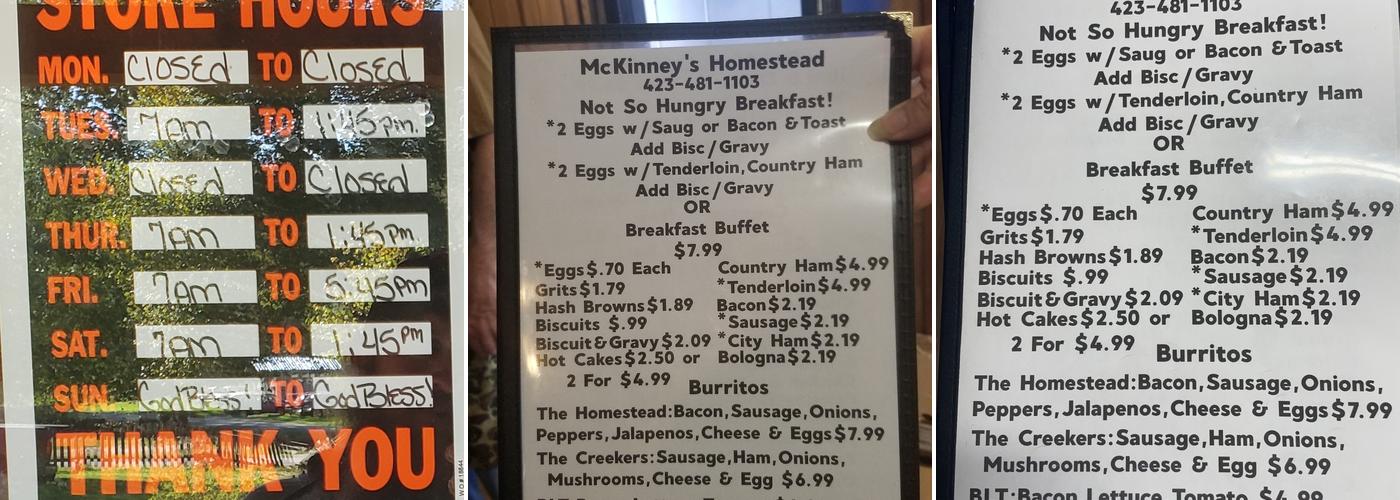 STORE HOURS
MON. Closed TO Closed
TUES. 7am TO 1:45pm.
WED. Closed TO Closed
THUR. 7am TO 1:45pm.
FRI. 7am TO 5:45pm
SAT. 7am TO 1:45pm
SUN. God Bless! TO God Bless!
THANK YOU
W.O.#
McKinney's Homestead
423-481-1103
Not So Hungry Breakfast!
*2 Eggs w/Saug or Bacon & Toast
Add Bisc/Gravy
*2 Eggs w/Tenderloin,Country Ham
Add Bisc/Gravy
OR
Breakfast Buffet
$7.99
*Eggs$.70 Each Country Ham$4.99
Grits$1.79 *Tenderloin$4.99
Hash Browns$1.89 Bacon$2.19
Biscuits $.99 *Sausage$2.19
Biscuit&Gravy$2.09 *City Ham$2.19
Hot Cakes$2.50 or Bologna$2.19
2 For $4.99 Burritos
The Homestead:Bacon,Sausage,Onions,
Peppers,Jalapenos,Cheese & Eggs$7.99
The Creekers:Sausage,Ham,Onions,
Mushrooms,Cheese & Egg $6.99
423-481-1103
Not So Hungry Breakfast!
*2 Eggs w/Saug or Bacon & Toast
Add Bisc/Gravy
*2 Eggs w/Tenderloin,Country Ham
Add Bisc/Gravy
OR
Breakfast Buffet
$7.99
*Eggs$.70 Each Country Ham$4.99
Grits$1.79 *Tenderloin$4.99
Hash Browns$1.89 Bacon$2.19
Biscuits $.99 *Sausage$2.19
Biscuit&Gravy$2.09 *City Ham$2.19
Hot Cakes$2.50 or Bologna$2.19
2 For $4.99 Burritos
The Homestead:Bacon,Sausage,Onions,
Peppers,Jalapenos,Cheese & Eggs$7.99
The Creekers:Sausage,Ham,Onions,
Mushrooms,Cheese & Egg $6.99
BLT:Bacon Lettuce Tomato $4.99